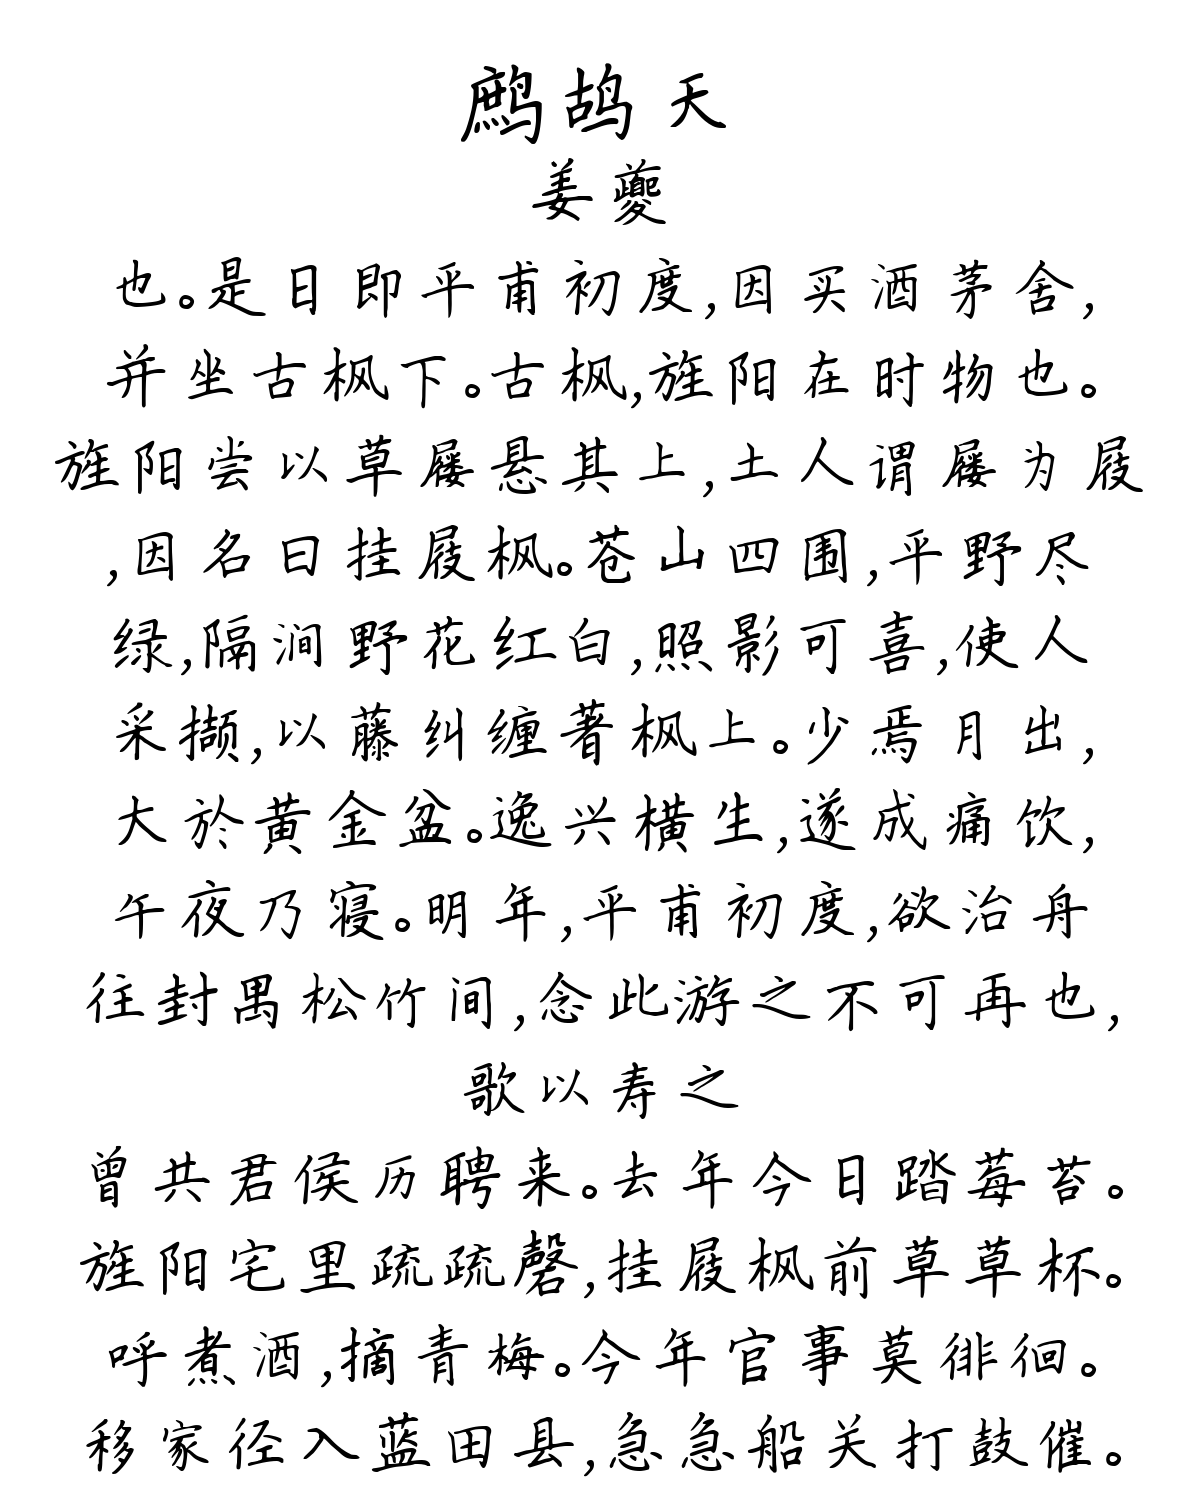 鹧鸪天
姜夔
也。是日即平甫初度,因买酒茅舍,
并坐古枫下。古枫,旌阳在时物也。
旌阳尝以草屦悬其上,土人谓屦为屐
,因名曰挂屐枫。苍山四围,平野尽
绿,隔涧野花红白,照影可喜,使人
采撷,以藤纠缠著枫上。少焉月出,
大於黄金盆。逸兴横生,遂成痛饮,
午夜乃寝。明年,平甫初度,欲治舟
往封禺松竹间,念此游之不可再也,
歌以寿之
曾共君侯历聘来。去年今日踏莓苔。
旌阳宅里疏疏磬,挂屐枫前草草杯。
呼煮酒,摘青梅。今年官事莫徘徊。
移家径入蓝田县,急急船关打鼓催。